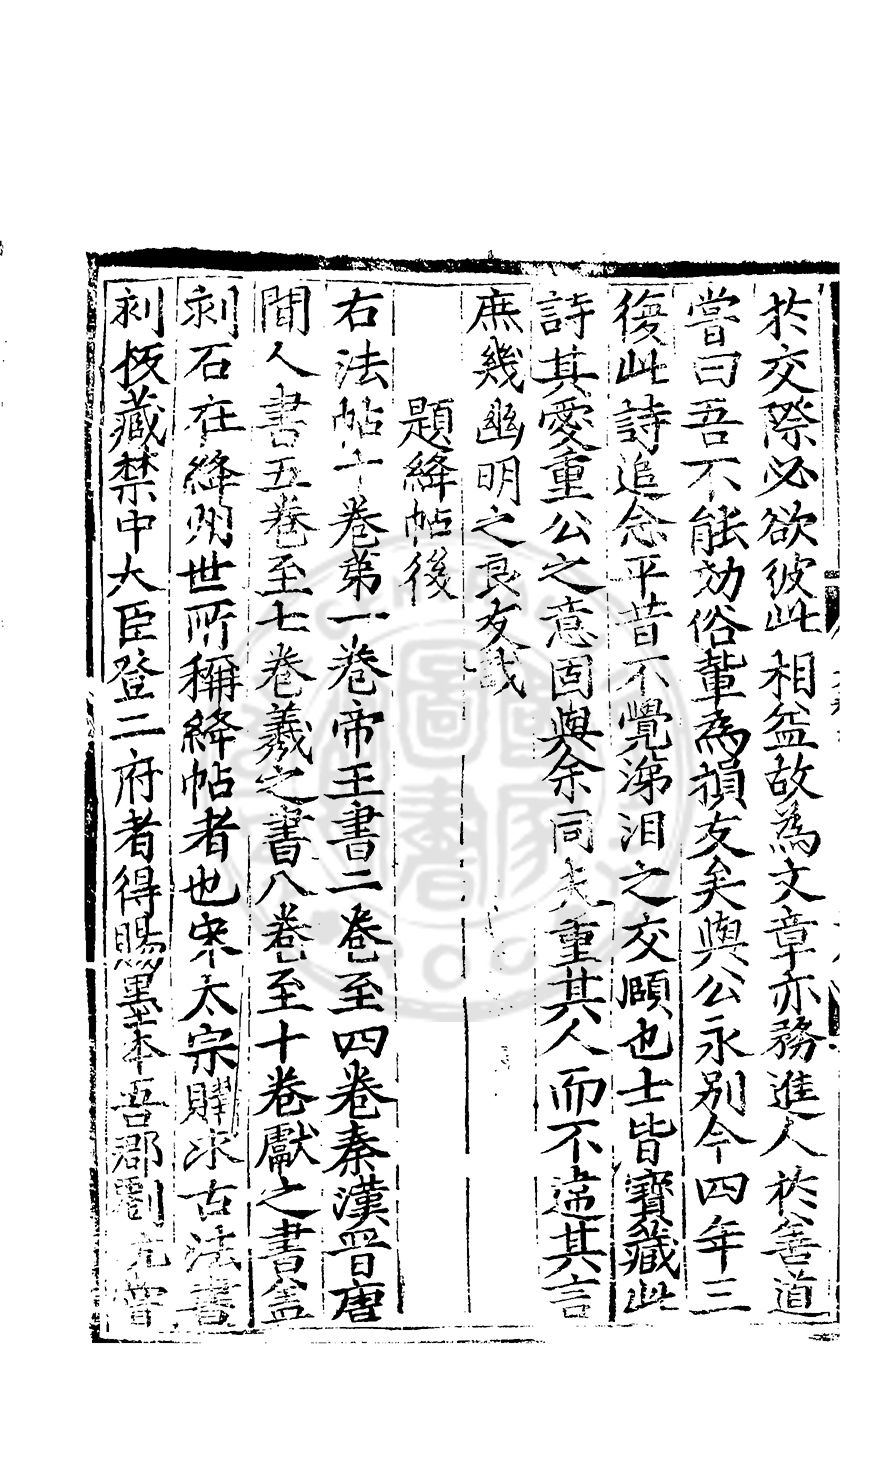 於交際必欲彼此相益故為文章亦務進人於善道
嘗曰吾不能効俗輩為損友矣與公永別今四年三
復此詩追念平昔不覺涕泪之交頤也士皆寶藏此
詩其愛重公之意固與余同夫重其人而不違其言
庶幾幽明之良友哉
題絳帖後
右法帖十卷第一卷帝王書二卷至四卷秦漢晉唐
間人書五卷至七卷羲之書八卷至十卷獻之書盖
刻石在絳州世所稱絳帖者也宋太宗購求古法書
刻板藏禁中大臣登二府者得賜墨本吾郡劉